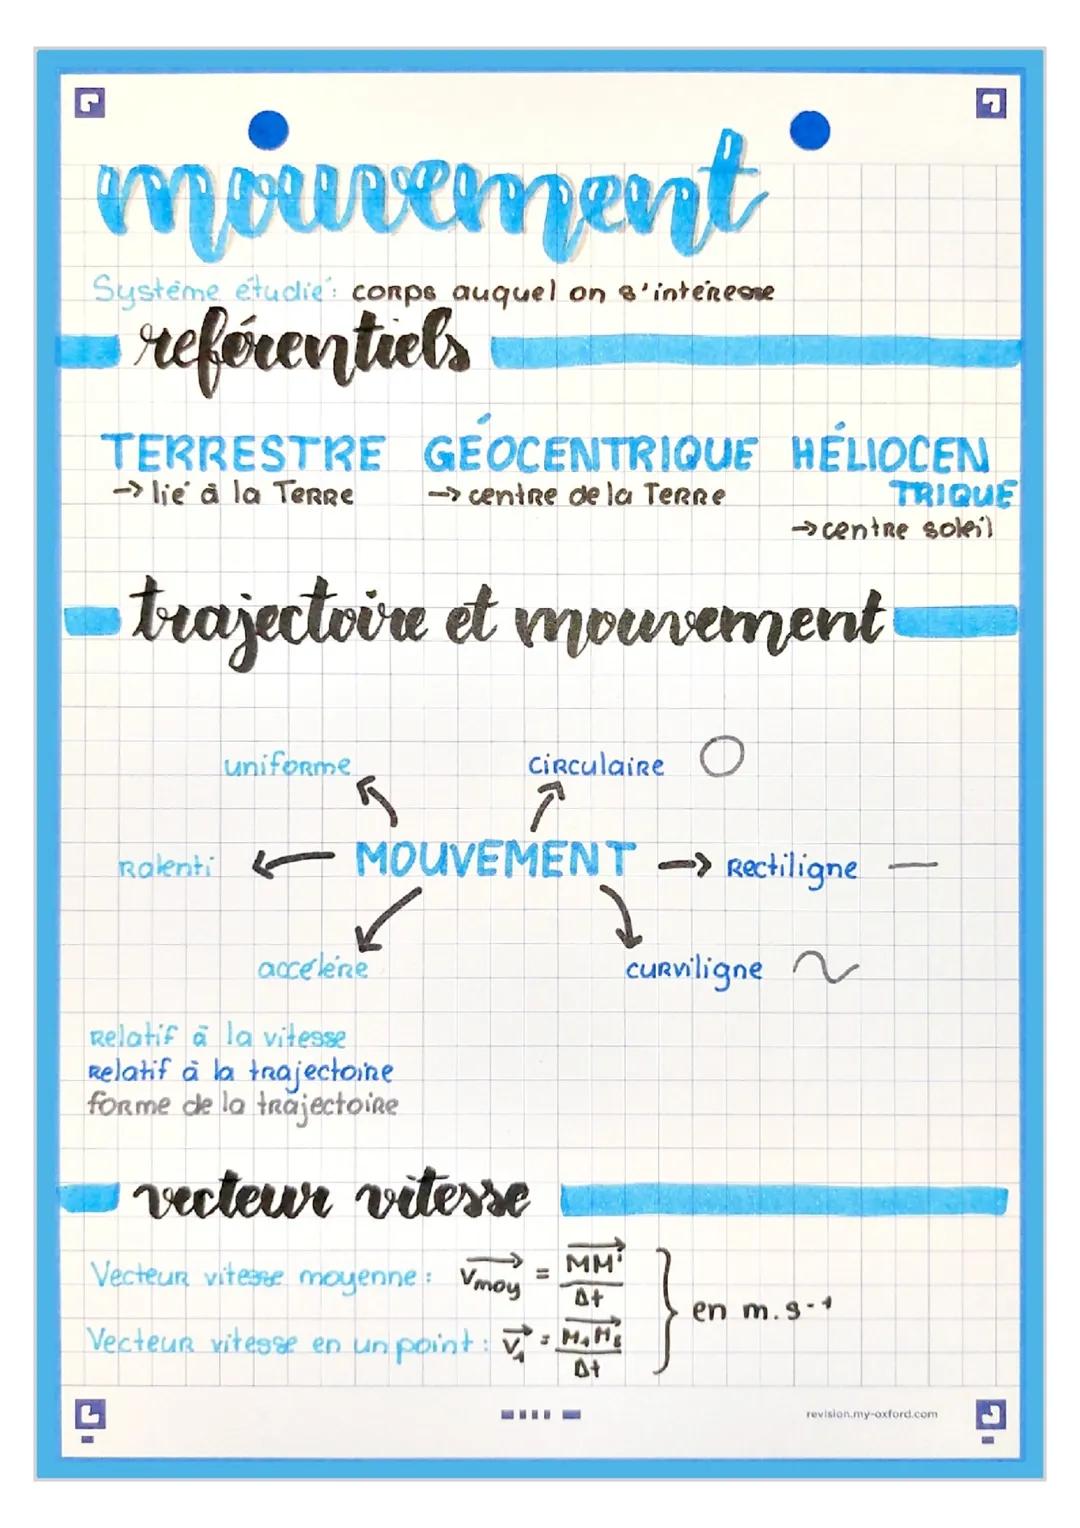 mouvement
Système étudié: corps auquel on s'intéresse
reférentiels
TERRESTRE GÉOCENTRIQUE HÉLIOCEN
TRIQUE
→ lié à la Terre → centre de la Terre
→ centre soleil
trajectoire et mouvement
uniforme circulaire
Ralenti MOUVEMENT → Rectiligne
accéléré curviligne
Relatif à la vitesse
Relatif à la trajectoire
forme de la trajectoire
vecteur vitesse
Vecteur vitesse moyenne: Vmoy = MM' / Δt
en m.s-1
Vecteur vitesse en un point: V1 = M1M2 / Δt
revision.my-oxford.com